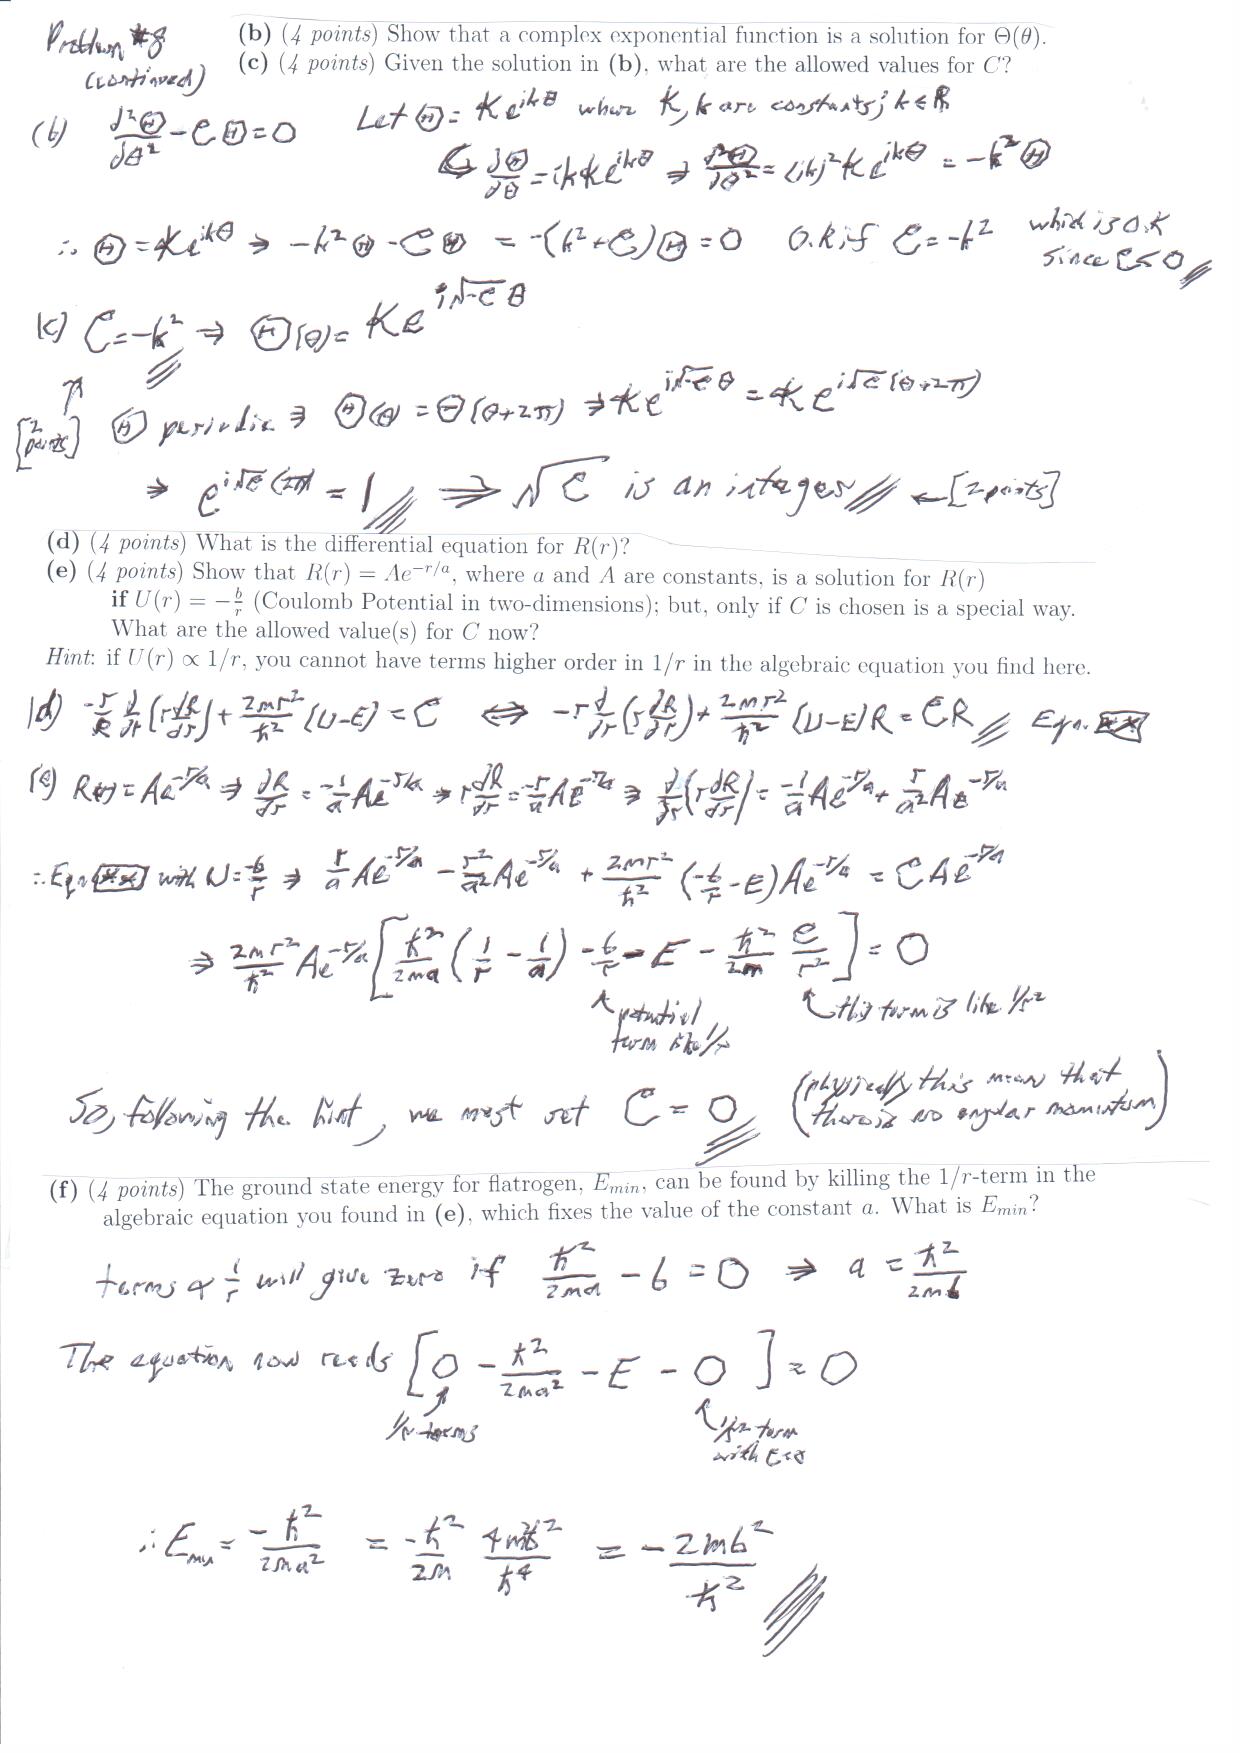 Problem #8
(continued)
(b) (4 points) Show that a complex exponential function is a solution for Θ(θ).
(c) (4 points) Given the solution in (b), what are the allowed values for C?
(b) d²Θ/dθ² - CΘ = 0 Let Θ = Ke^{ikθ} where K, k are constants; k ∈ ℝ
↳ dΘ/dθ = ikKe^{ikθ} ⇒ d²Θ/dθ² = (ik)²Ke^{ikθ} = -k²Θ
∴ Θ = Ke^{ikθ} ⇒ -k²Θ - CΘ = -(k²+C)Θ = 0 O.K if C = -k² which is O.K
since C≤0
(c) C = -k² ⇒ Θ(θ) = Ke^{i√-C θ}
↑
[2 points] Θ periodic ⇒ Θ(θ) = Θ(θ+2π) ⇒ Ke^{i√-C θ} = Ke^{i√C (θ+2π)}
⇒ e^{i√C (2π)} = 1 ⇒ √C is an integer ← [2 points]
(d) (4 points) What is the differential equation for R(r)?
(e) (4 points) Show that R(r) = Ae^{-r/a}, where a and A are constants, is a solution for R(r)
if U(r) = -b/r (Coulomb Potential in two-dimensions); but, only if C is chosen is a special way.
What are the allowed value(s) for C now?
Hint: if U(r) ∝ 1/r, you cannot have terms higher order in 1/r in the algebraic equation you find here.
(d) -r/R d/dr(r dR/dr) + 2mr²/ħ² (U-E) = C ⇔ -r d/dr(r dR/dr) + 2mr²/ħ² (U-E)R = CR Eqn. **
(e) R(r) = Ae^{-r/a} ⇒ dR/dr = -1/a Ae^{-r/a} ⇒ r dR/dr = -r/a Ae^{-r/a} ⇒ d/dr(r dR/dr) = -1/a Ae^{-r/a} + r/a² Ae^{-r/a}
∴ Eqn ** with U = -b/r ⇒ r/a Ae^{-r/a} - r²/a² Ae^{-r/a} + 2mr²/ħ² (-b/r - E) Ae^{-r/a} = CAe^{-r/a}
⇒ 2mr²/ħ² Ae^{-r/a} [ħ²/2ma (1/r - 1/a) - b/r - E - ħ²/2m C/r²] = 0
↑ potential ↑ this term is like 1/r²
term like 1/r
So, following the hint, we must set C = 0 (physically this mean that
there is no angular momentum)
(f) (4 points) The ground state energy for flatrogen, E_{min}, can be found by killing the 1/r-term in the
algebraic equation you found in (e), which fixes the value of the constant a. What is E_{min}?
terms ∝ 1/r will give zero if ħ²/2ma - b = 0 ⇒ a = ħ²/2mb
The equation now reads [0 - ħ²/2ma² - E - 0] = 0
1/r terms 1/r² term
with C=0
∴ E_{min} = -ħ²/2ma² = -ħ²/2m 4m²b²/ħ⁴ = -2mb²/ħ²